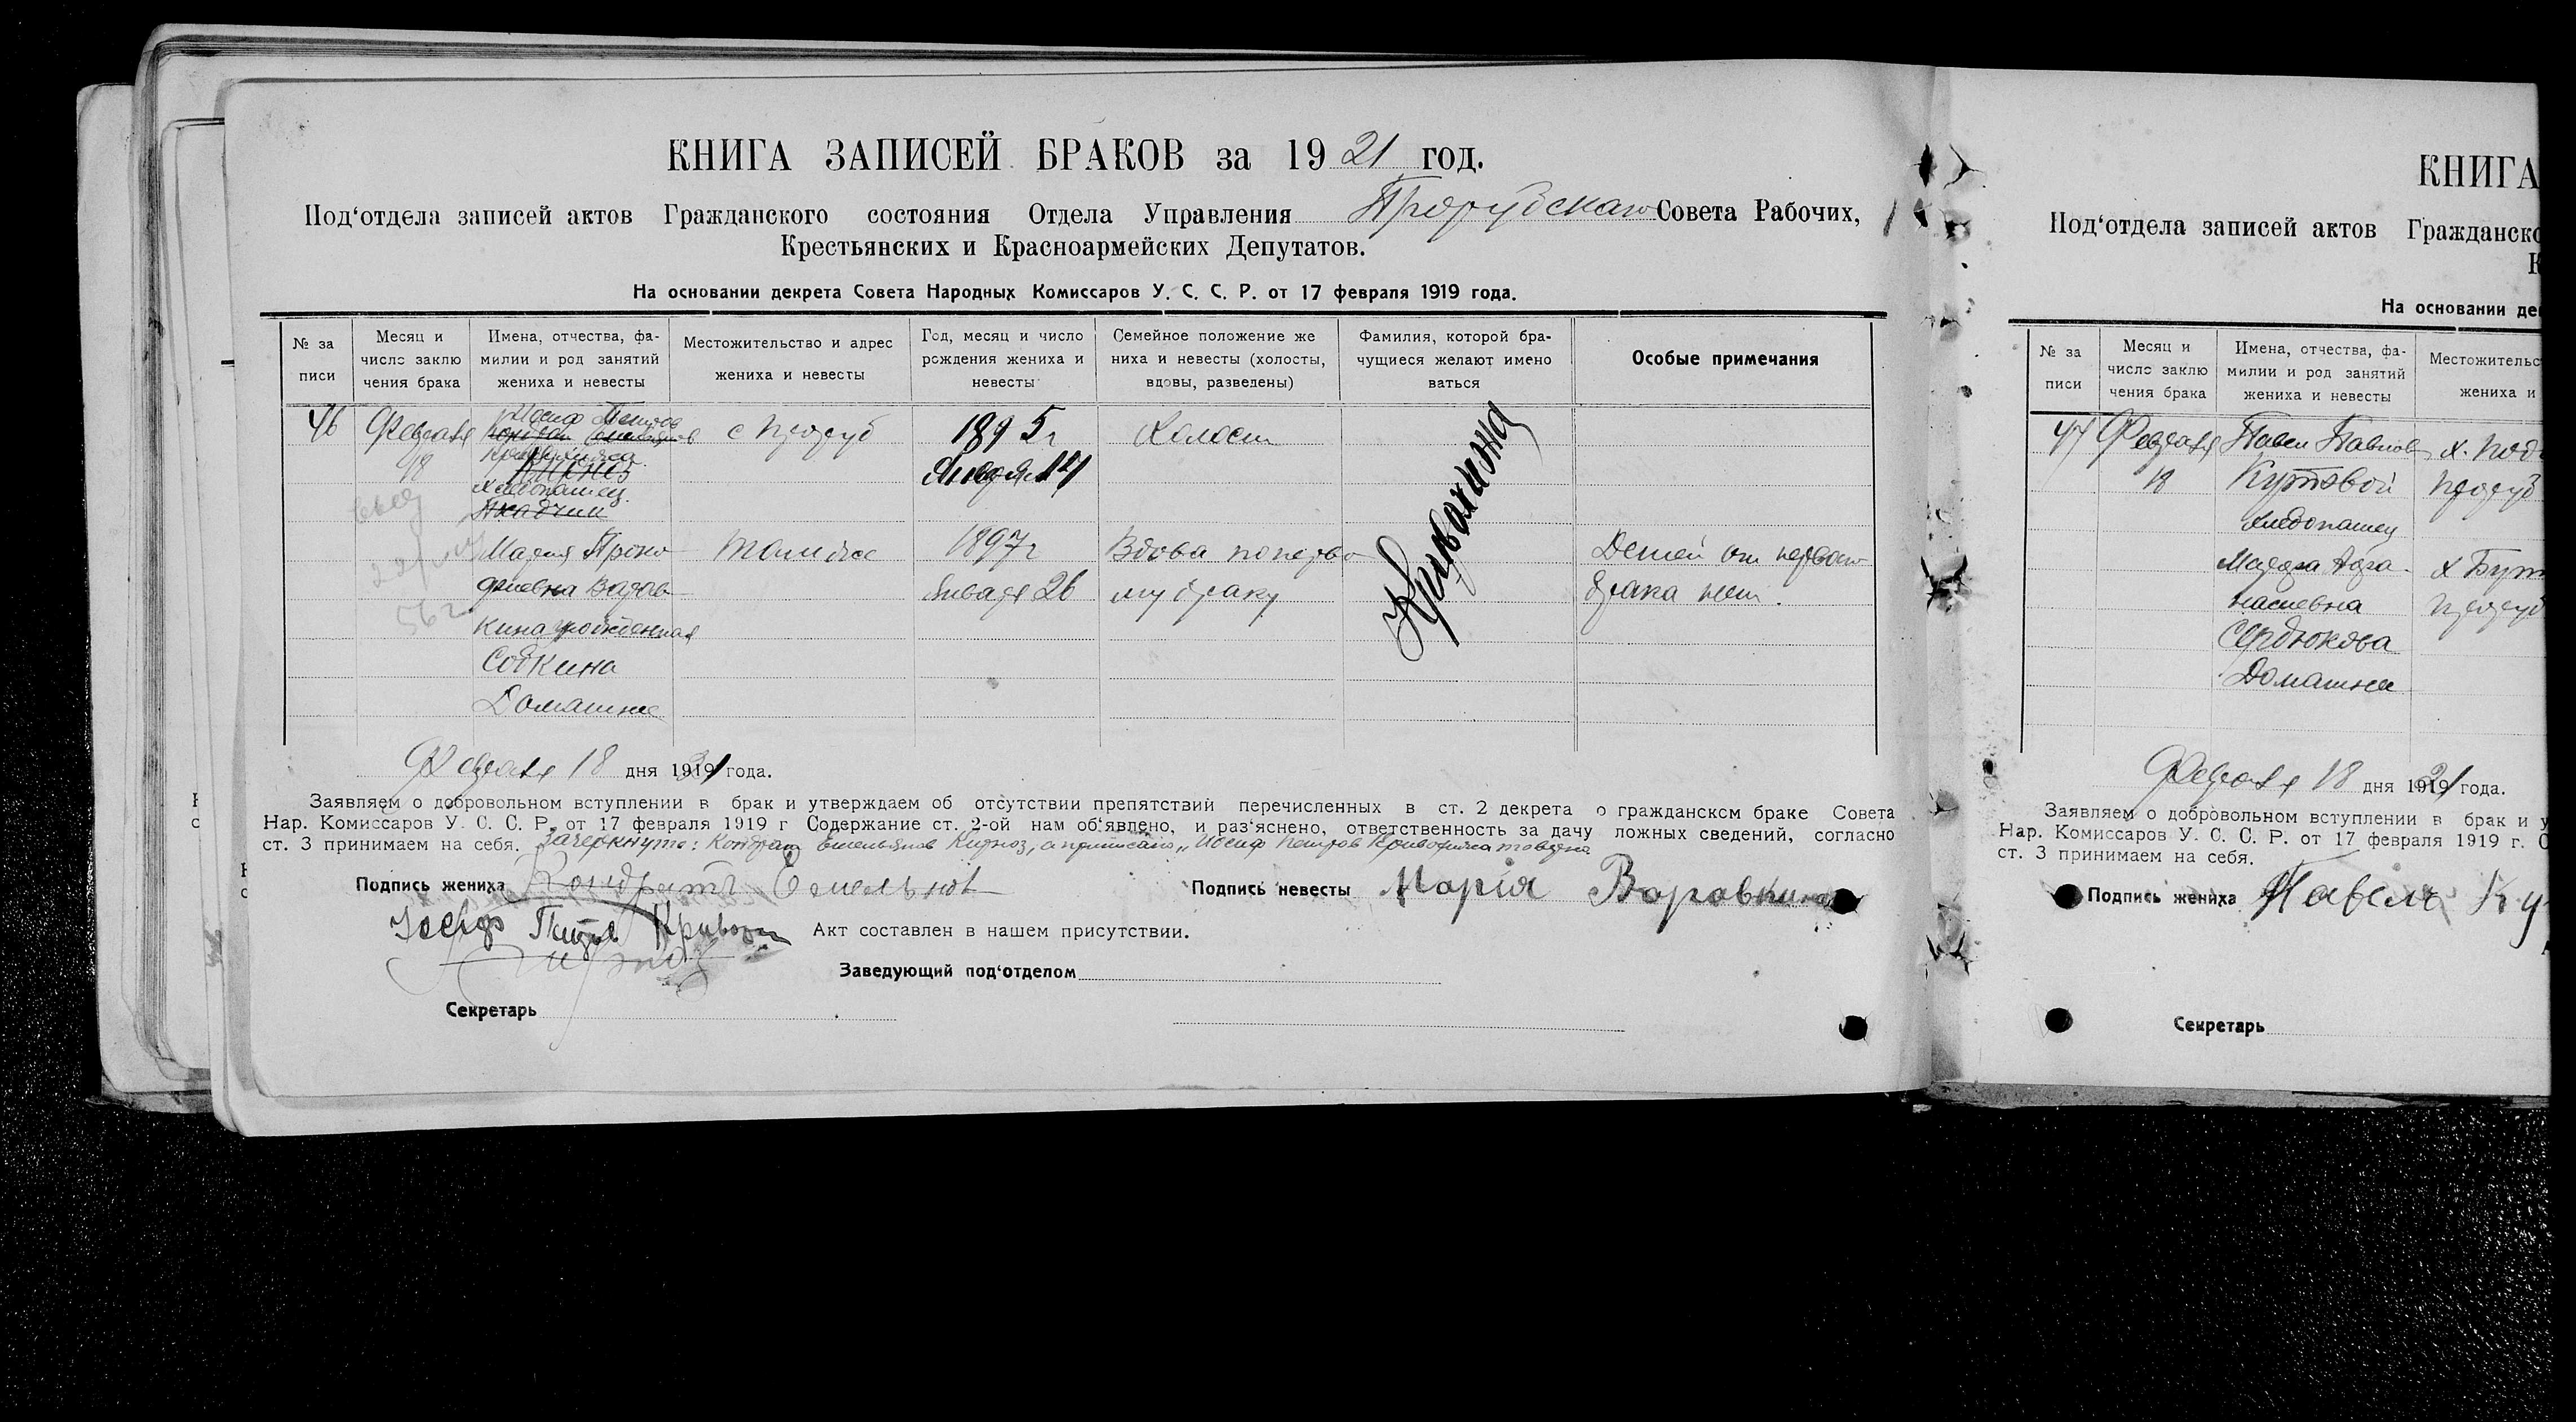 КНИГА ЗАПИСЕЙ БРАКОВ за 1921 год.
Под'отдела записей актов Гражданского состояния Отдела Управления Прорубскаго Совета Рабочих,
Крестьянских и Красноармейских Депутатов.
На основании декрета Совета Народных Комиссаров У. С. С. Р. от 17 февраля 1919 года.
№ за писи
Месяц и число заклю чения брака
Имена, отчества, фа- милии и род занятий жениха и невесты
Местожительство и адрес жениха и невесты
Год, месяц и число рождения жениха и невесты
Семейное положение же ниха и невесты (холосты, вдовы, разведены)
Фамилия, которой бра- чущиеся желают имено ваться
Особые примечания
46 Февраля Иосиф Петров с Проруб 1895 г Холост
Кондрат Емельянов
18 Января 14
Хлебопашец
Мария Проко- Там же 1897 г Вдова по перво Детей от перваго
фиевна Варав- Января 26 му браку брака нет.
56 г
кина урожденная
Собкина
Домашнее
Кривохижа
Февраля 18 дня 1921 года.
Заявляем о добровольном вступлении в брак и утверждаем об отсутствии препятствий перечисленных в ст. 2 декрета о гражданском браке Совета
Нар. Комиссаров У. С. С. Р. от 17 февраля 1919 г Содержание ст. 2-ой нам об'явлено, и раз'яснено, ответственность за дачу ложных сведений, согласно
ст. 3 принимаем на себя. Зачеркнуто: Кондрат Емельянов, а приписано "Иосиф Петров Кривохижа
Подпись жениха Кондратъ Емельянов Подпись невесты Марія Воровкина
Иосиф Петров Акт составлен в нашем присутствии.
Заведующий под'отделом
Секретарь
КНИГА
Под'отдела записей актов Гражданско
К
На основании де
№ за писи
Месяц и число заклю чения брака
Имена, отчества, фа- милии и род занятий жениха и невесты
Местожительс жениха и
47 Февраля Павел Павлов х.
18 Куртовой Проруб
Хлебопашец
Афа- х
насиевна Проруб
Сердюкова
Домашнее
Февраля 18 дня 1921 года.
Заявляем о добровольном вступлении в брак и у
Нар. Комиссаров У. С. С. Р. от 17 февраля 1919 г. С
ст. 3 принимаем на себя.
Подпись жениха Павелъ Ку
Секретарь